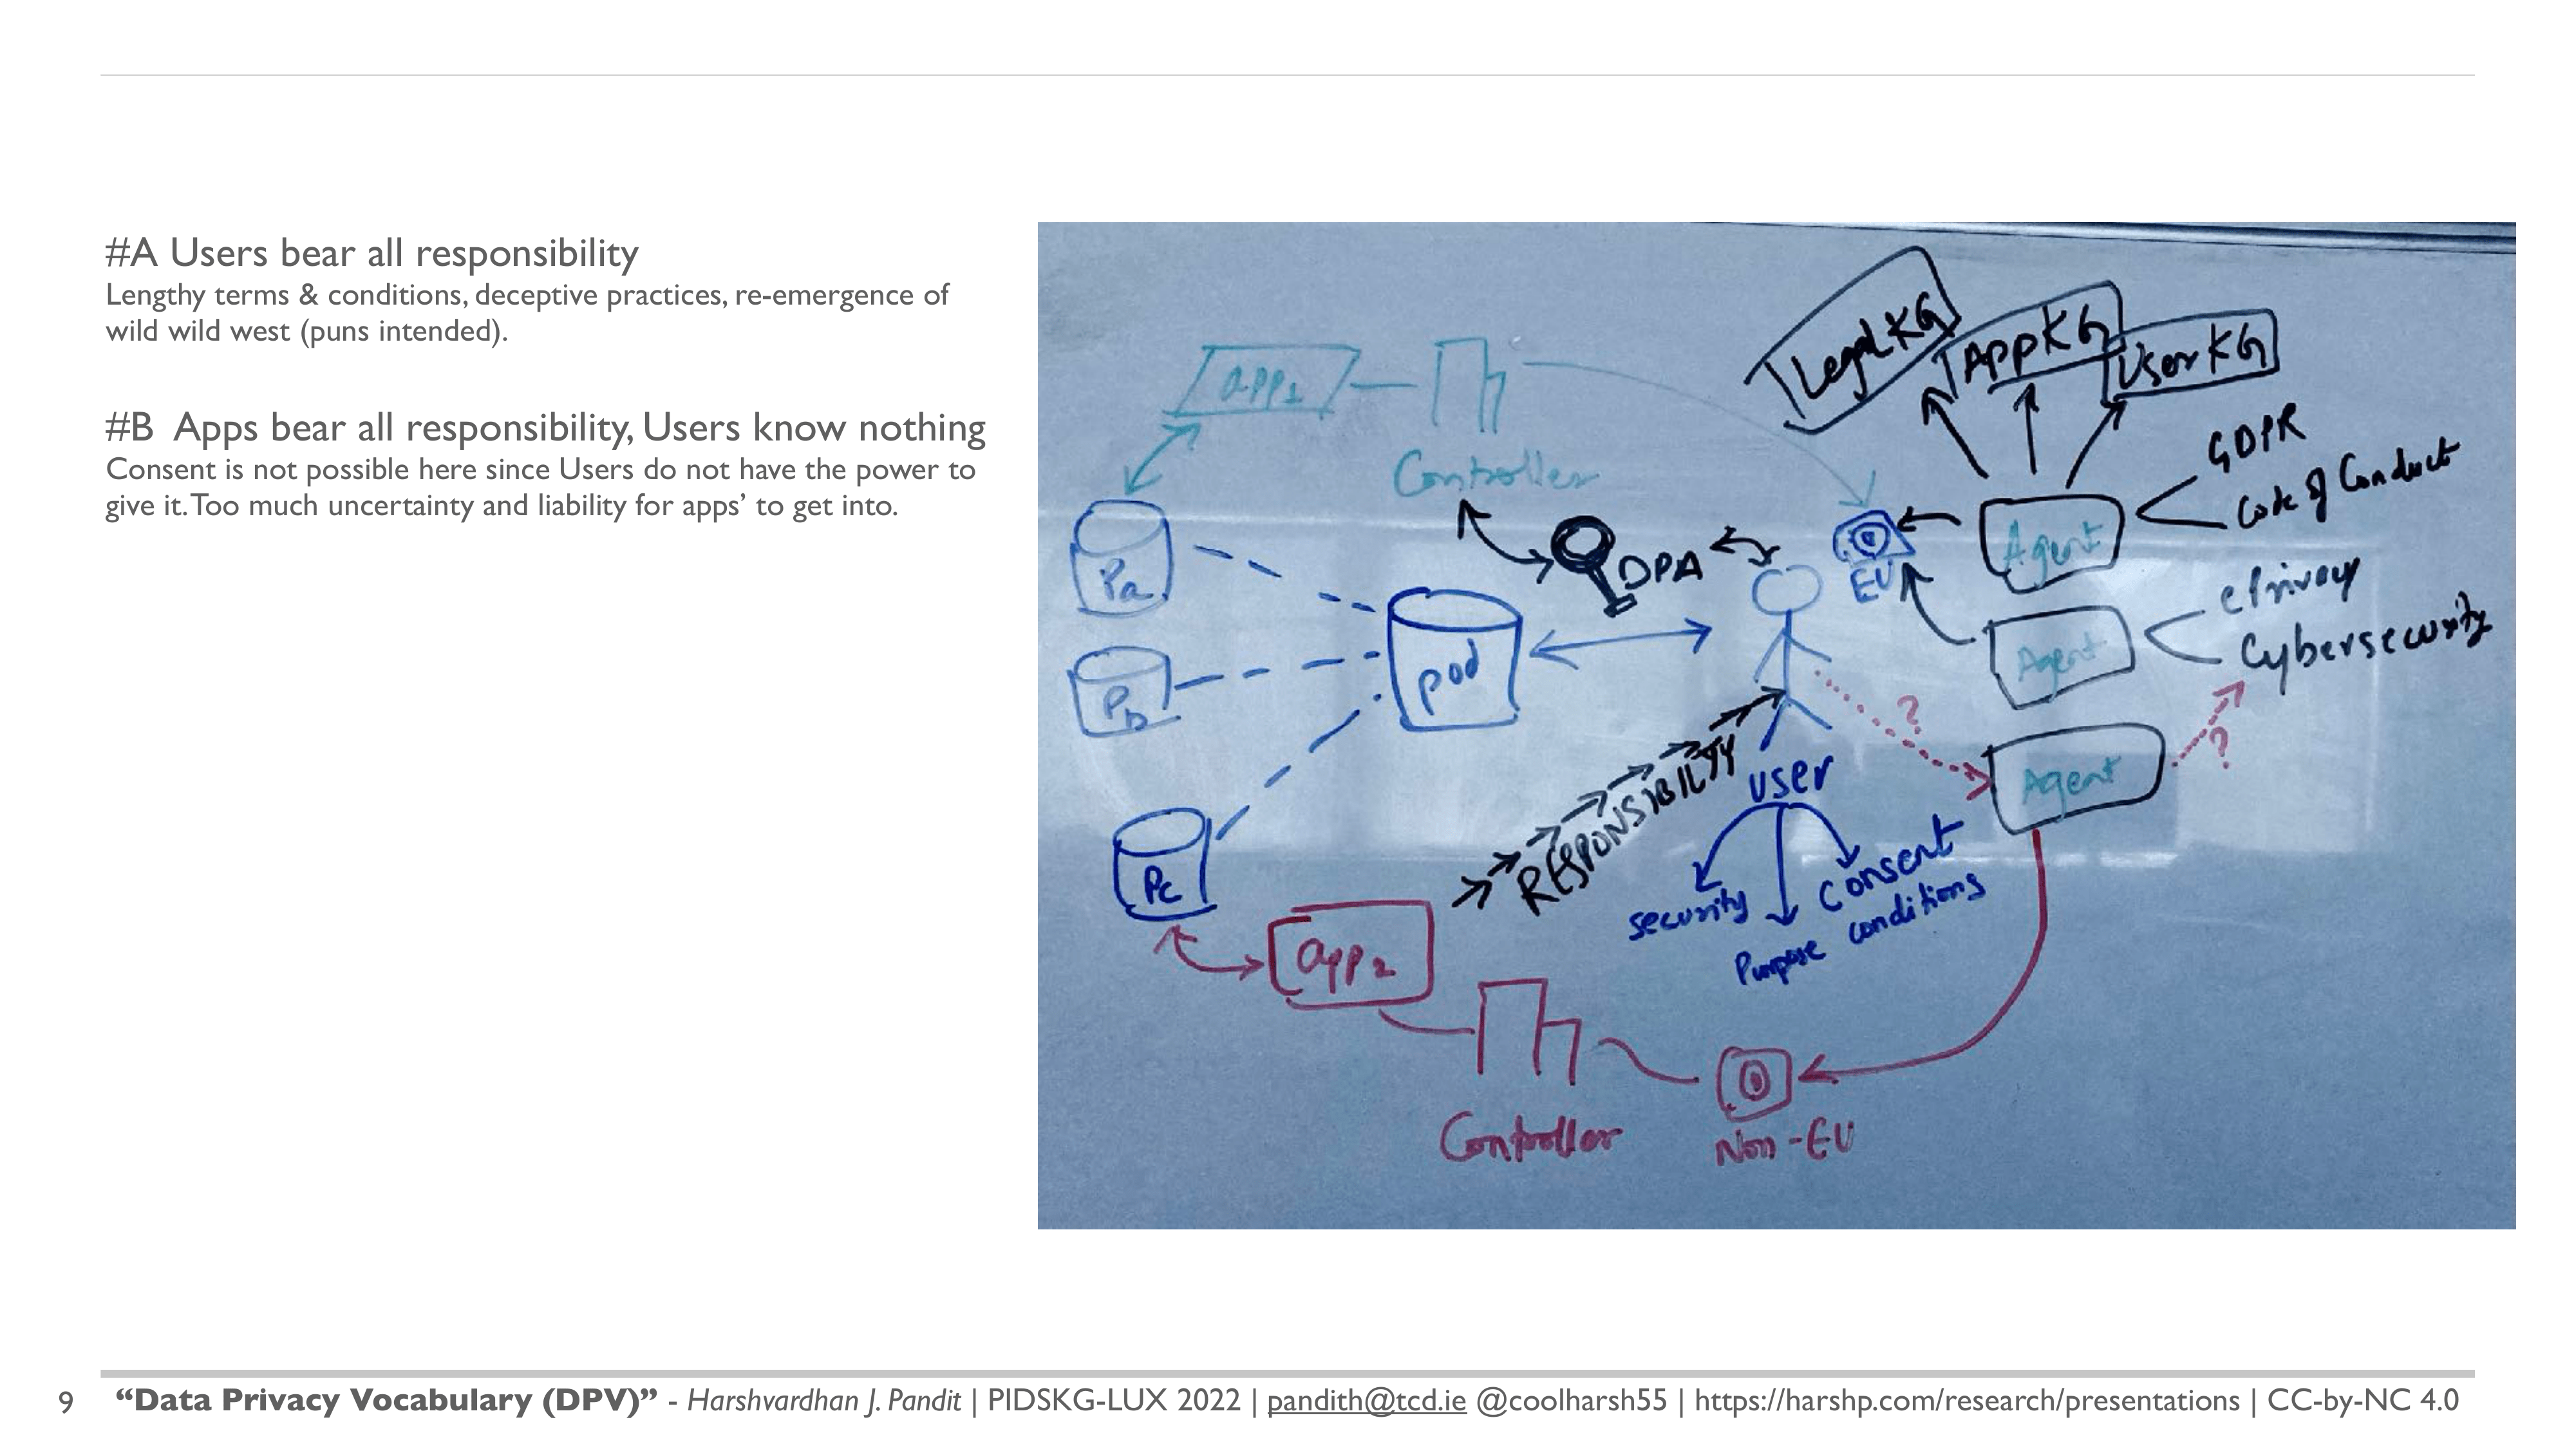 #A Users bear all responsibility
Lengthy terms & conditions, deceptive practices, re-emergence of
wild wild west (puns intended).
#B Apps bear all responsibility, Users know nothing
Consent is not possible here since Users do not have the power to
give it. Too much uncertainty and liability for apps’ to get into.
Legal KG
App KG
User KG
app1
Controller
GDPR
Code of Conduct
Agent
DPA
EU
Pa
ePrivacy
Cybersecurity
Agent
Pb
pod
?
?
RESPONSIBILITY
user
Agent
Pc
security
Consent
Purpose
conditions
app2
Controller
Non-EU
9 “Data Privacy Vocabulary (DPV)” - Harshvardhan J. Pandit | PIDSKG-LUX 2022 | pandith@tcd.ie @coolharsh55 | https://harshp.com/research/presentations | CC-by-NC 4.0